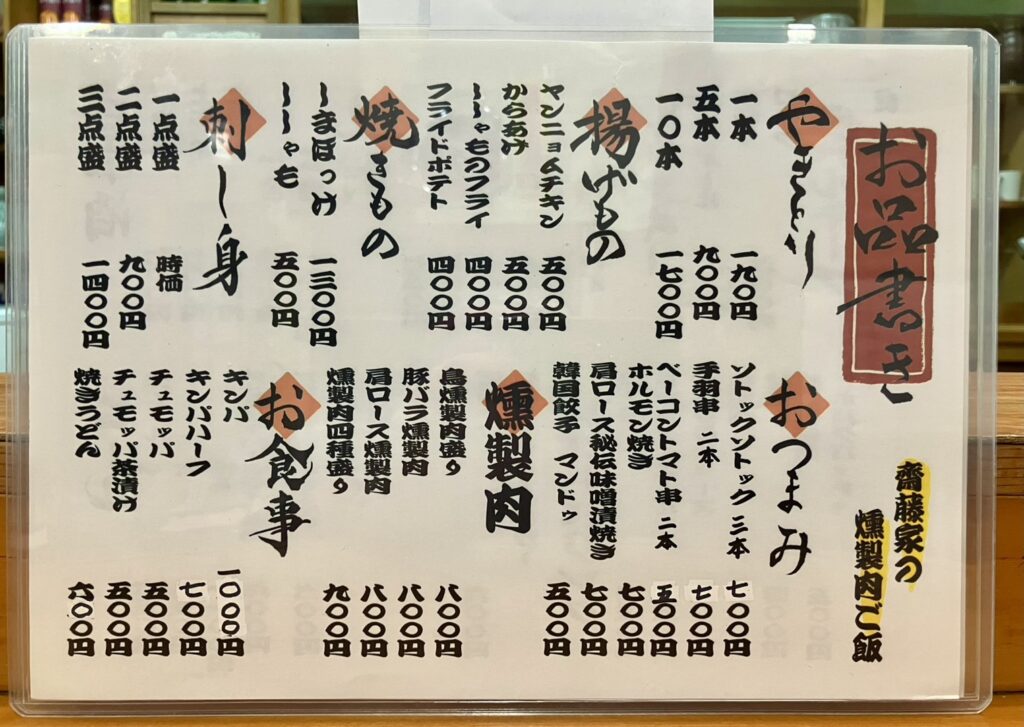 お品書き
齋藤家の
燻製肉ご飯
やきとり
一本 一九〇円
五本 九〇〇円
一〇本 一七〇〇円
揚げもの
ヤンニョムチキン 五〇〇円
からあげ 五〇〇円
ししゃものフライ 四〇〇円
フライドポテト 四〇〇円
焼きもの
しまほっけ 一三〇〇円
ししゃも 五〇〇円
刺し身
一点盛 時価
二点盛 九〇〇円
三点盛 一四〇〇円
おつまみ
ソトックソトック 三本 七〇〇円
手羽串 二本 七〇〇円
ベーコントマト串 二本 五〇〇円
ホルモン焼き 七〇〇円
肩ロース秘伝味噌漬焼き 七〇〇円
韓国餃子 マンドゥ 五〇〇円
燻製肉
鳥燻製肉盛り 八〇〇円
豚バラ燻製肉 八〇〇円
肩ロース燻製肉 八〇〇円
燻製肉四種盛り 九〇〇円
お食事
キンパ 一〇〇〇円
キンパハーフ 七〇〇円
チュモッパ 五〇〇円
チュモッパ茶漬け 五〇〇円
焼きうどん 六〇〇円